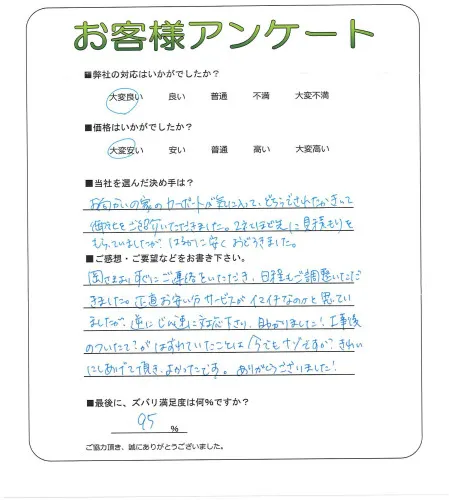 お客様アンケート
■弊社の対応はいかがでしたか?
大変良い 良い 普通 不満 大変不満
■価格はいかがでしたか?
大変安い 安い 普通 高い 大変高い
■当社を選んだ決め手は?
お向かいの家のカーポートが気に入って、どちらでされたかきって
御社をご紹介いただきました。2社ほど先に見積もりを
もらっていましたが、はるかに安くおどろきました。
■ご感想・ご要望などをお書き下さい。
すぐにご連絡をいただき、日程もご調整いただ
きました。正直お安い分サービスがイマイチなのかと思ってい
ましたが、逆にじん速に対応下さり、助かりました!工事後
のついたて?がはずれていたことは今でもナゾですが?きれい
にしあげて頂き、よかったです。ありがとうございました!
■最後に、ズバリ満足度は何%ですか?
95 %
ご協力頂き、誠にありがとうございました。